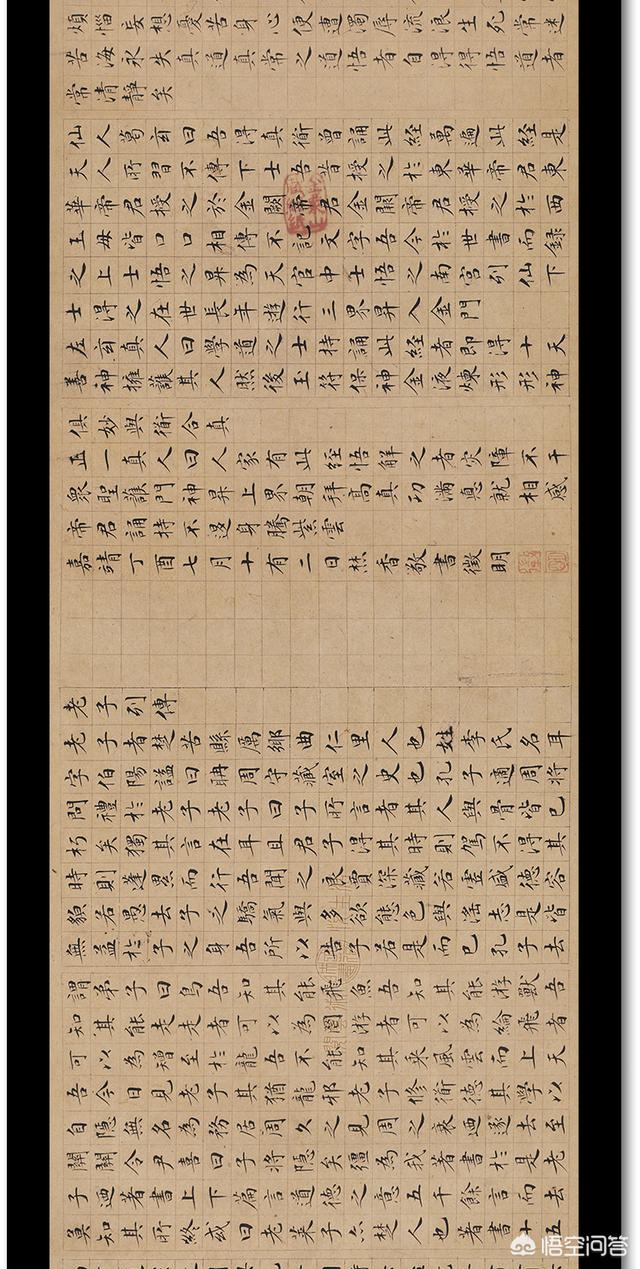 煩惱妄想憂苦身心便遭濁辱流浪生死常迷
苦海永失真道真常之道悟者自得得悟道者
常清靜矣
仙人葛玄曰吾淂真衜曾誦此經萬遍此經是
天人所習不傳下士吾昔授之於東華帝君東
華帝君授之於金闕帝君金闕帝君授之於西
王母皆口口相傳不記文字吾今於世書而錄
之上士悟之昇為天官中士悟之南宮列仙下
士淂之在世長年遊行三界昇入金門
左玄真人曰學道之士持誦此經者即淂十天
善神擁護其人然後玉符保神金液煉形形神
俱妙與衜合真
正一真人曰人家有此經悟解之者灾障不干
衆聖護門神昇上界朝拜高真功滿惪就相感
帝君誦持不退身騰紫雲
嘉靖丁酉七月十有二日焚香敬書徵明
老子列傳
老子者楚苦縣厲鄉曲仁里人也姓李氏名耳
字伯陽謚曰聃周守藏室之史也孔子適周將
問禮於老子老子曰子所言者其人與骨皆已
朽矣獨其言在耳且君子得其時則駕不得其
時則蓬累而行吾聞之良賈深藏若虛盛德容
貌若愚去子之驕氣與多欲態色與淫志是皆
無益於子之身吾所以告子若是而已孔子去
謂弟子曰鳥吾知其能飛魚吾知其能游獸吾
知其能走走者可以為罔游者可以為綸飛者
可以為矰至於龍吾不能知其乘風雲而上天
吾今日見老子其猶龍邪老子修衜德其學以
自隱無名為務居周久之見周之衰迺遂去至
關關令尹喜曰子將隱矣彊為我著書於是老
子迺著書上下篇言道德之意五千餘言而去
莫知其所終或曰老萊子亦楚人也著書十五
悟空问答